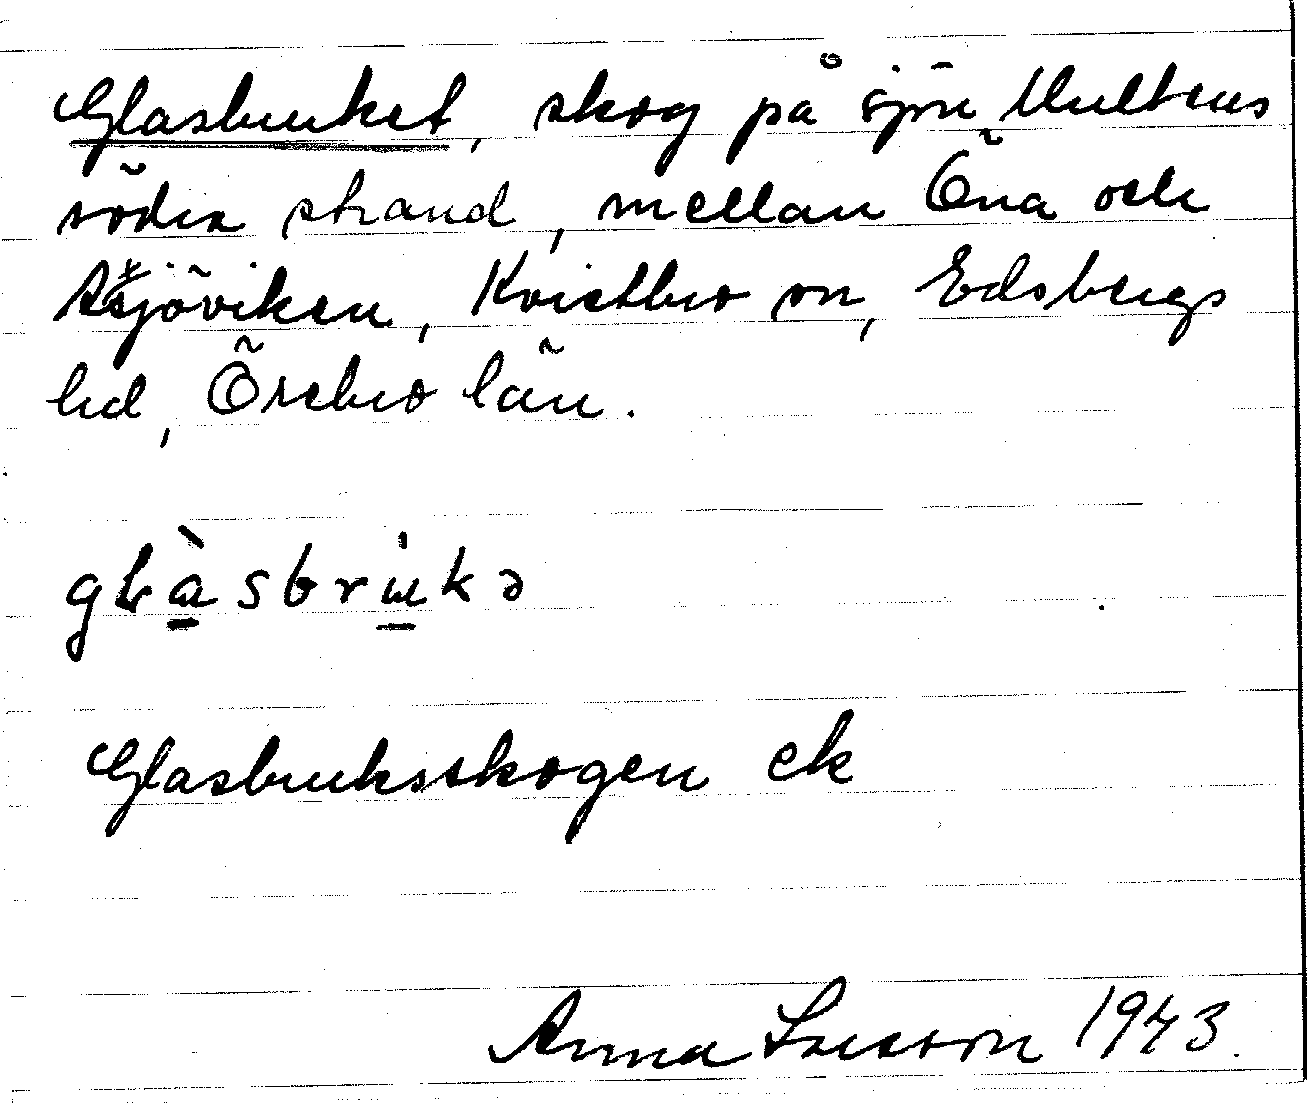 Glasbruket, skog på sjön Multens
södra strand, mellan Öna och
Sjöviken, Kvistbro sn, Edsbergs
hd, Örebro län.
glàsbrukə
Glasbruksskogen ek
Anna Larsson 1943.